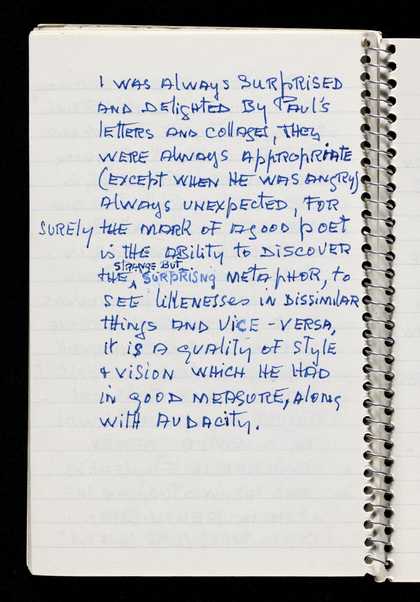 I WAS ALWAYS SURPRISED
AND DELIGHTED BY PAUL'S
LETTERS AND COLLAGES, THEY
WERE ALWAYS APPROPRIATE
(EXCEPT WHEN HE WAS ANGRY)
ALWAYS UNEXPECTED, FOR
SURELY THE MARK OF A GOOD POET
IS THE ABILITY TO DISCOVER
STRANGE BUT
THE SURPRISING METAPHOR, TO
SEE LIKENESSES IN DISSIMILAR
THINGS AND VICE-VERSA,
IT IS A QUALITY OF STYLE
+ VISION WHICH HE HAD
IN GOOD MEASURE, ALONG
WITH AUDACITY.